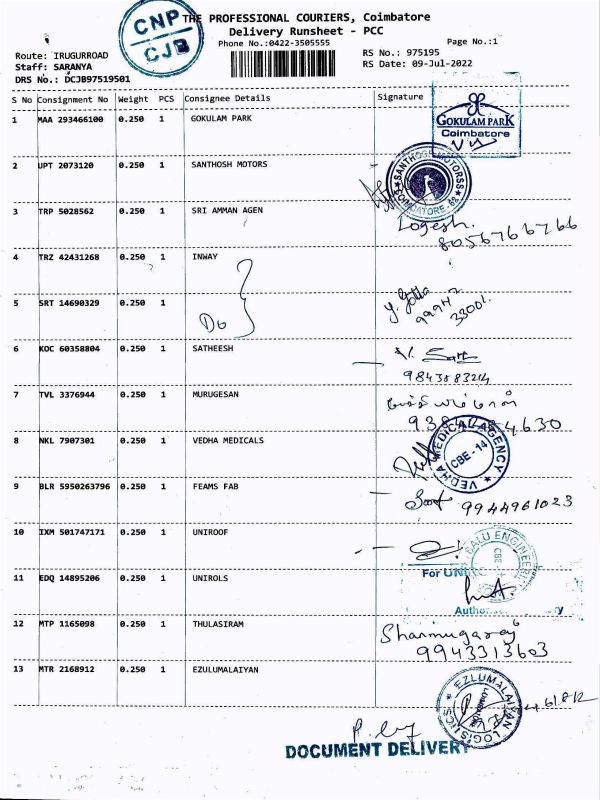 CNP
CJB
THE PROFESSIONAL COURIERS, Coimbatore
Delivery Runsheet - PCC
Phone No.:0422-3505555
Page No.:1
Route: IRUGURROAD
RS No.: 975195
Staff: SARANYA
RS Date: 09-Jul-2022
DRS No.: DCJB97519501
S No Consignment No Weight PCS Consignee Details Signature
1 MAA 293466100 0.250 1 GOKULAM PARK
GOKULAM PARK
Coimbatore
2 UPT 2073120 0.250 1 SANTHOSH MOTORS
SANTHOSH MOTORSS
COIMBATORE - 62
3 TRP 5028562 0.250 1 SRI AMMAN AGEN
Logesh.
8056766766
4 TRZ 42431268 0.250 1 INWAY
5 SRT 14690329 0.250 1
Do
6 KOC 60358804 0.250 1 SATHEESH
9843883214
7 TVL 3376944 0.250 1 MURUGESAN
8 NKL 7907301 0.250 1 VEDHA MEDICALS
VEDHA MEDICAL AGENCY
CBE - 14
9 BLR 5950263796 0.250 1 FEAMS FAB
9944961023
10 IXM 501747171 0.250 1 UNIROOF
BALU ENGINEERI
CBE
11 EDQ 14895206 0.250 1 UNIROLS
For UNI
12 MTP 1165098 0.250 1 THULASIRAM
Shanmugaraj
9943313603
13 MTR 2168912 0.250 1 EZULUMALAIYAN
EZLUMALAIYAN LOGISTICS
DOCUMENT DELIVERY